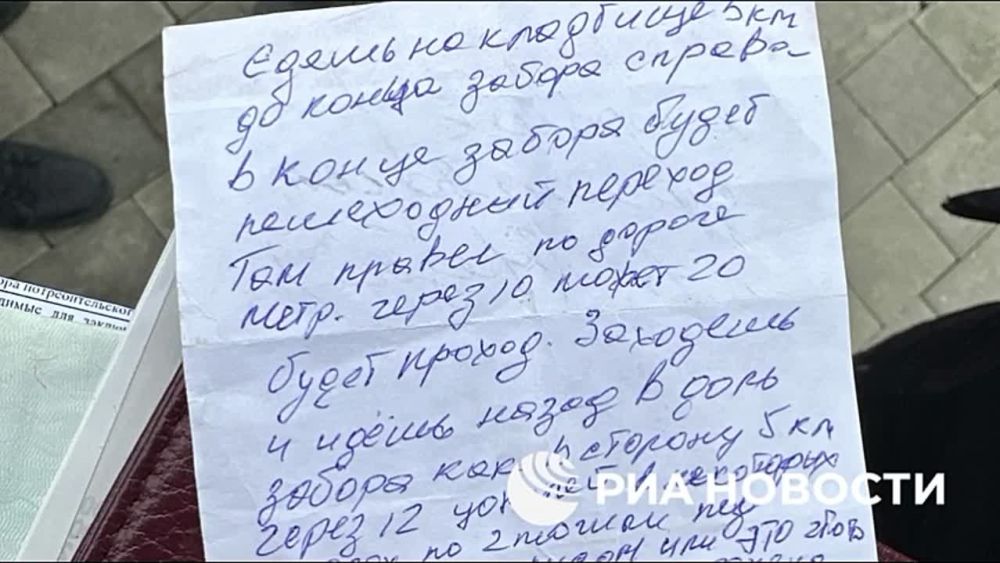 Едешь на кладбище 5 км
до конца забора справа
в конце забора будет
пешеходный переход
Там правее по дороге
метр. через 10 может 20
будет проход. Заходешь
и идёшь назад в доль
забора как в сторону 5 км
через 12 некоторых
по 2 или это
РИА НОВОСТИ
ора потребительског
димые для заклю